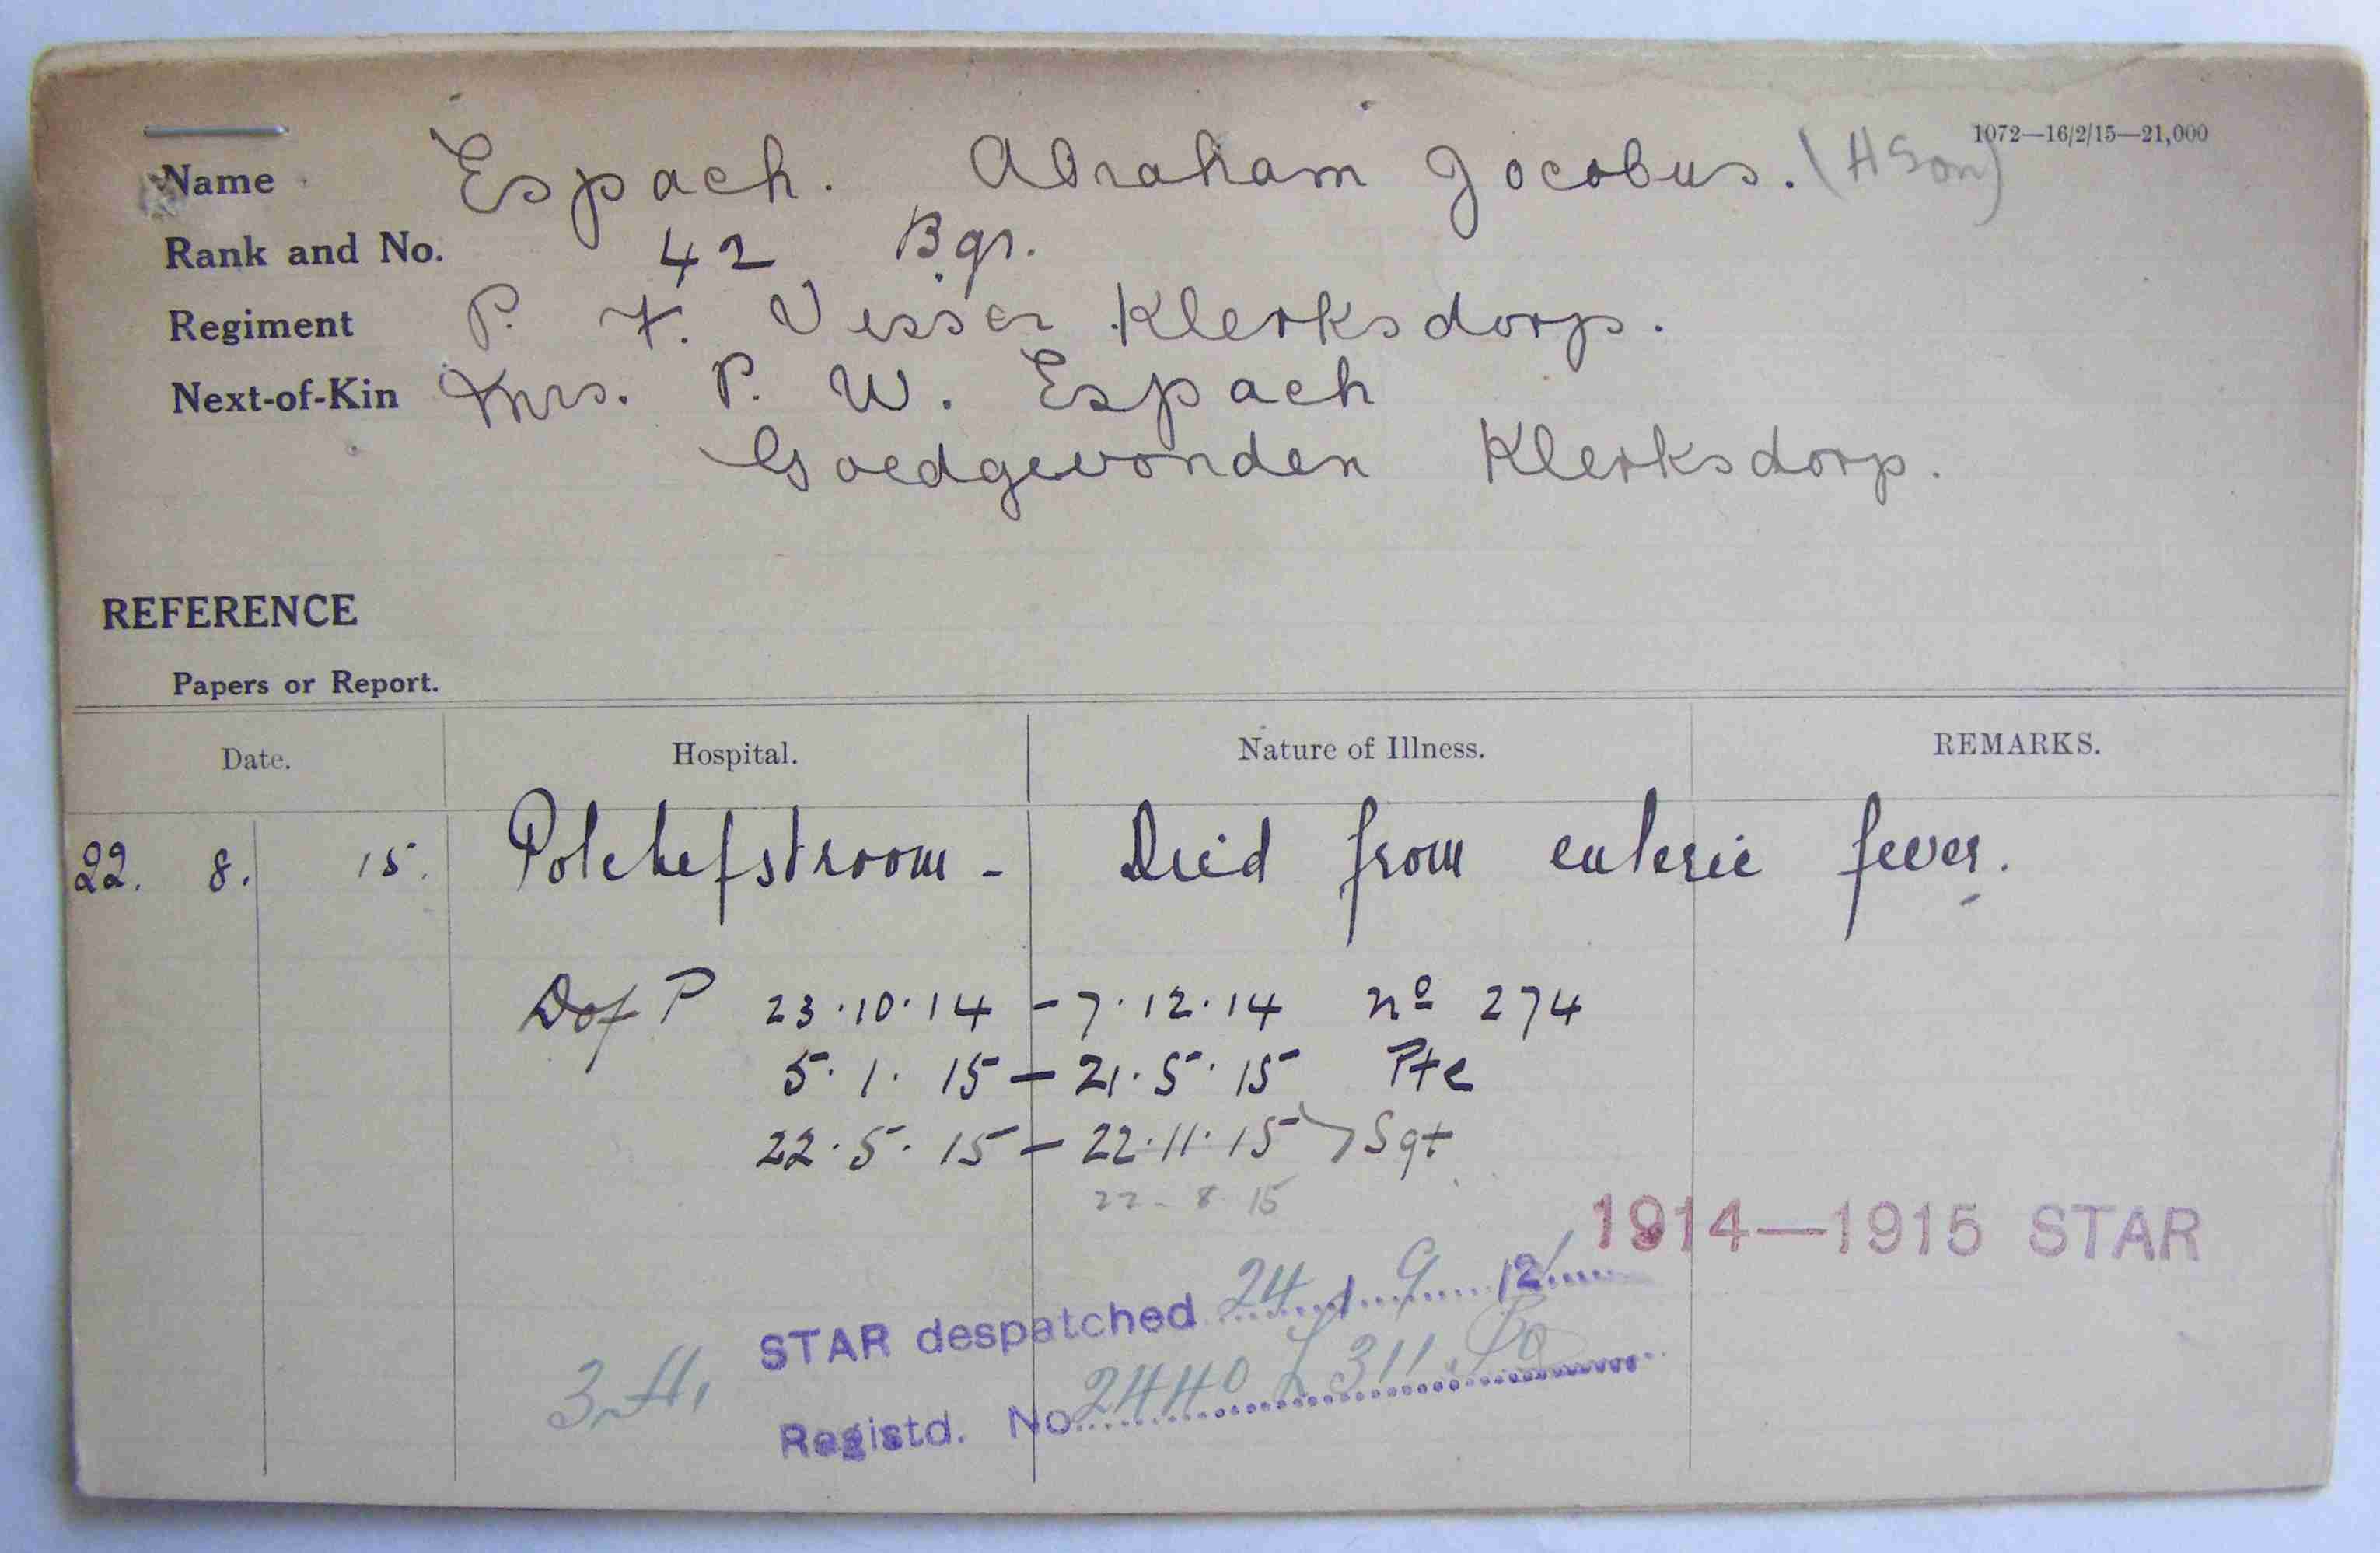 1072—16/2/15—21,000
Name Espach. Abraham Jocobus. (HSon)
Rank and No. 42 Bgr.
Regiment P. F. Visser Klerksdorp.
Next-of-Kin Mrs. P. W. Espach
Goedgevonden Klerksdorp.
REFERENCE
Papers or Report.
Date. Hospital. Nature of Illness. REMARKS.
22. 8. 15. Potchefstroom - Died from enteric fever.
D of P 23.10.14 - 7.12.14 nº 274
5.1.15 - 21.5.15 Pte
22.5.15 - 22.11.15 Sgt
22-8 15
1914—1915 STAR
STAR despatched 24 / 9 /2
3.H.
Registd. No. 2440 L 311